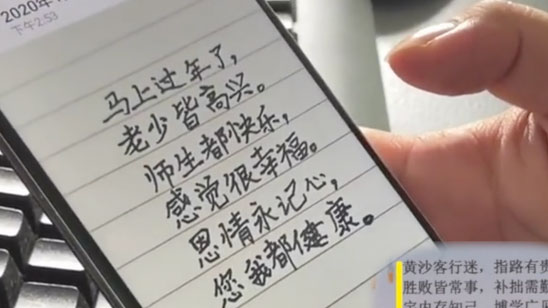 下午2:53
马上过年了，
老少皆高兴。
师生都快乐，
感觉很幸福。
恩情永记心，
您我都健康。
黄沙客行迷，指路有贵
胜败皆常事，补拙需勤